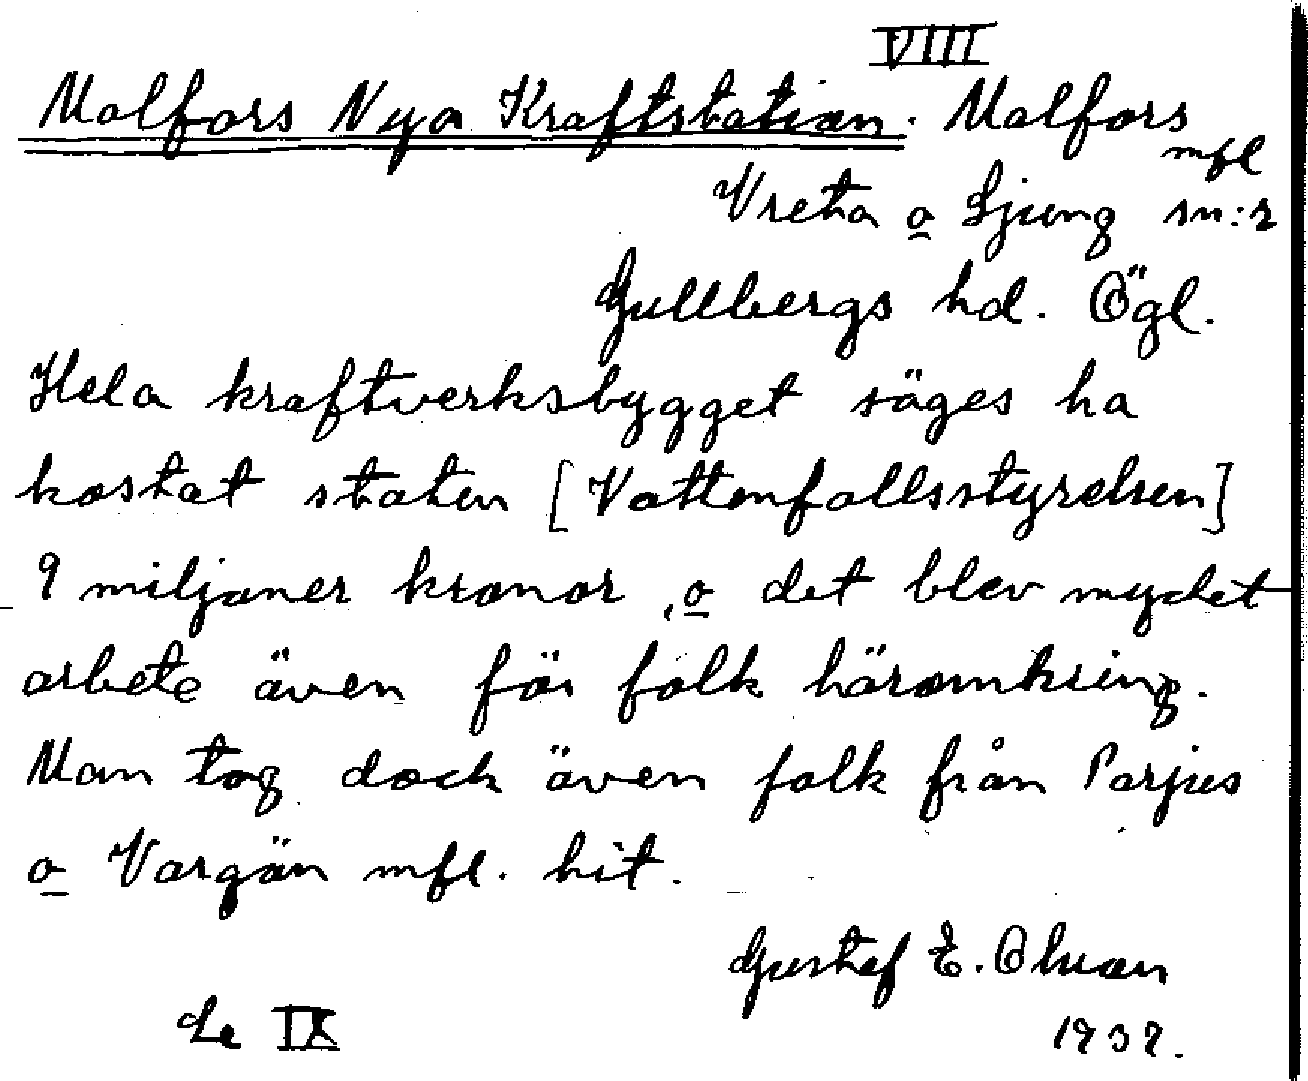 VIII
Malfors Nya Kraftstation. Malfors
mfl
Vreta o Ljung sn:r
Gullbergs hd. Ögl.
Hela kraftverksbygget säges ha
kostat staten [Vattenfallsstyrelsen]
9 miljoner kronor, o det blev mycket
arbete även för folk häromkring.
Man tog dock även folk från Porjus
o Vargön mfl. hit.
Gustaf E. Olsson
Se IX
1937.